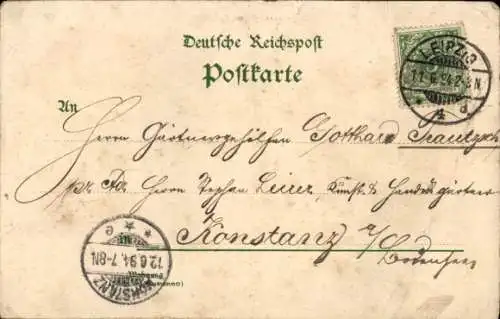 Deutsche Reichspost
Postkarte
An
LEIPZIG
11.6.94.2-3N.
4 d
Herrn Gärtnergehilfen Gotthard Trautzsch
pr. Adr. Herrn Stephan Leiner, Kunst & Handelsgärtner
Konstanz a/
Bodensee
KONSTANZ
12.6.94.7-8N
e